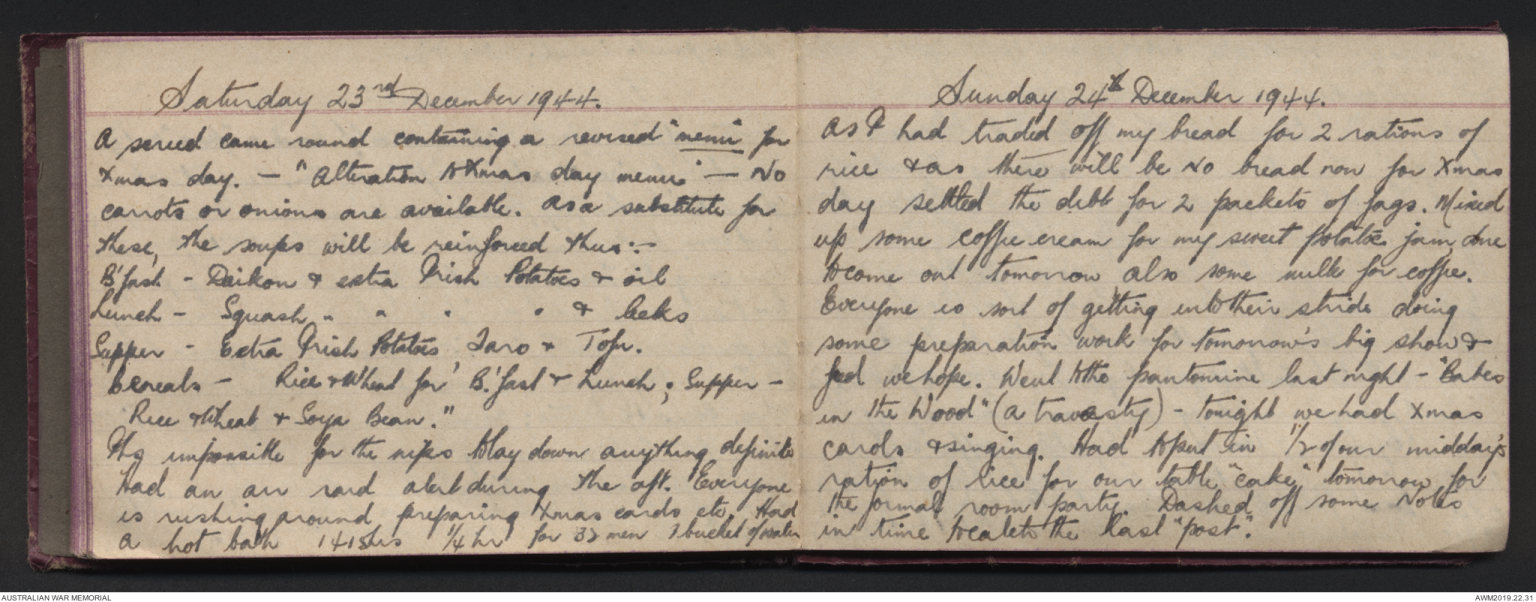 Saturday 23rd December 1944.
A screed came round containing a revised "menu" for
Xmas day. — "Alteration to Xmas day menu" — No
carrots or onions are available. As a substitute for
these, the soups will be reinforced thus:-
B'fast - Daikon & extra Irish Potatoes & oil
Lunch - Squash " " " " & leeks
Supper - Extra Irish Potatoes, Taro & Tofu.
Cereals - Rice & Wheat for B'fast & Lunch; Supper -
Rice & Wheat & Soya Bean."
It's impossible for the nips to lay down anything definite
Had an air raid alert during the aft. Everyone
is rushing around preparing Xmas cards etc. Had
a hot bath 1415hrs 1/4 hr for 32 men 1 bucket of water
Sunday 24th December 1944.
As I had traded off my bread for 2 rations of
rice & as there will be no bread now for Xmas
day settled the debt for 2 packets of fags. Mixed
up some coffee cream for my sweet potatoe jam, due
to come out tomorrow also some milk for coffee.
Everyone is sort of getting into their stride doing
some preparation work for tomorrow's big show &
feed we hope. Went to the pantomine last night - "Babes
in the Wood" (a travesty) - tonight we had Xmas
carols & singing. Had to put in 1/2 of our midday's
ration of rice for our table "cake", tomorrow, for
the formal room party. Dashed off some notes
in time to catch the last "post".
AUSTRALIAN WAR MEMORIAL
AWM2019.22.31